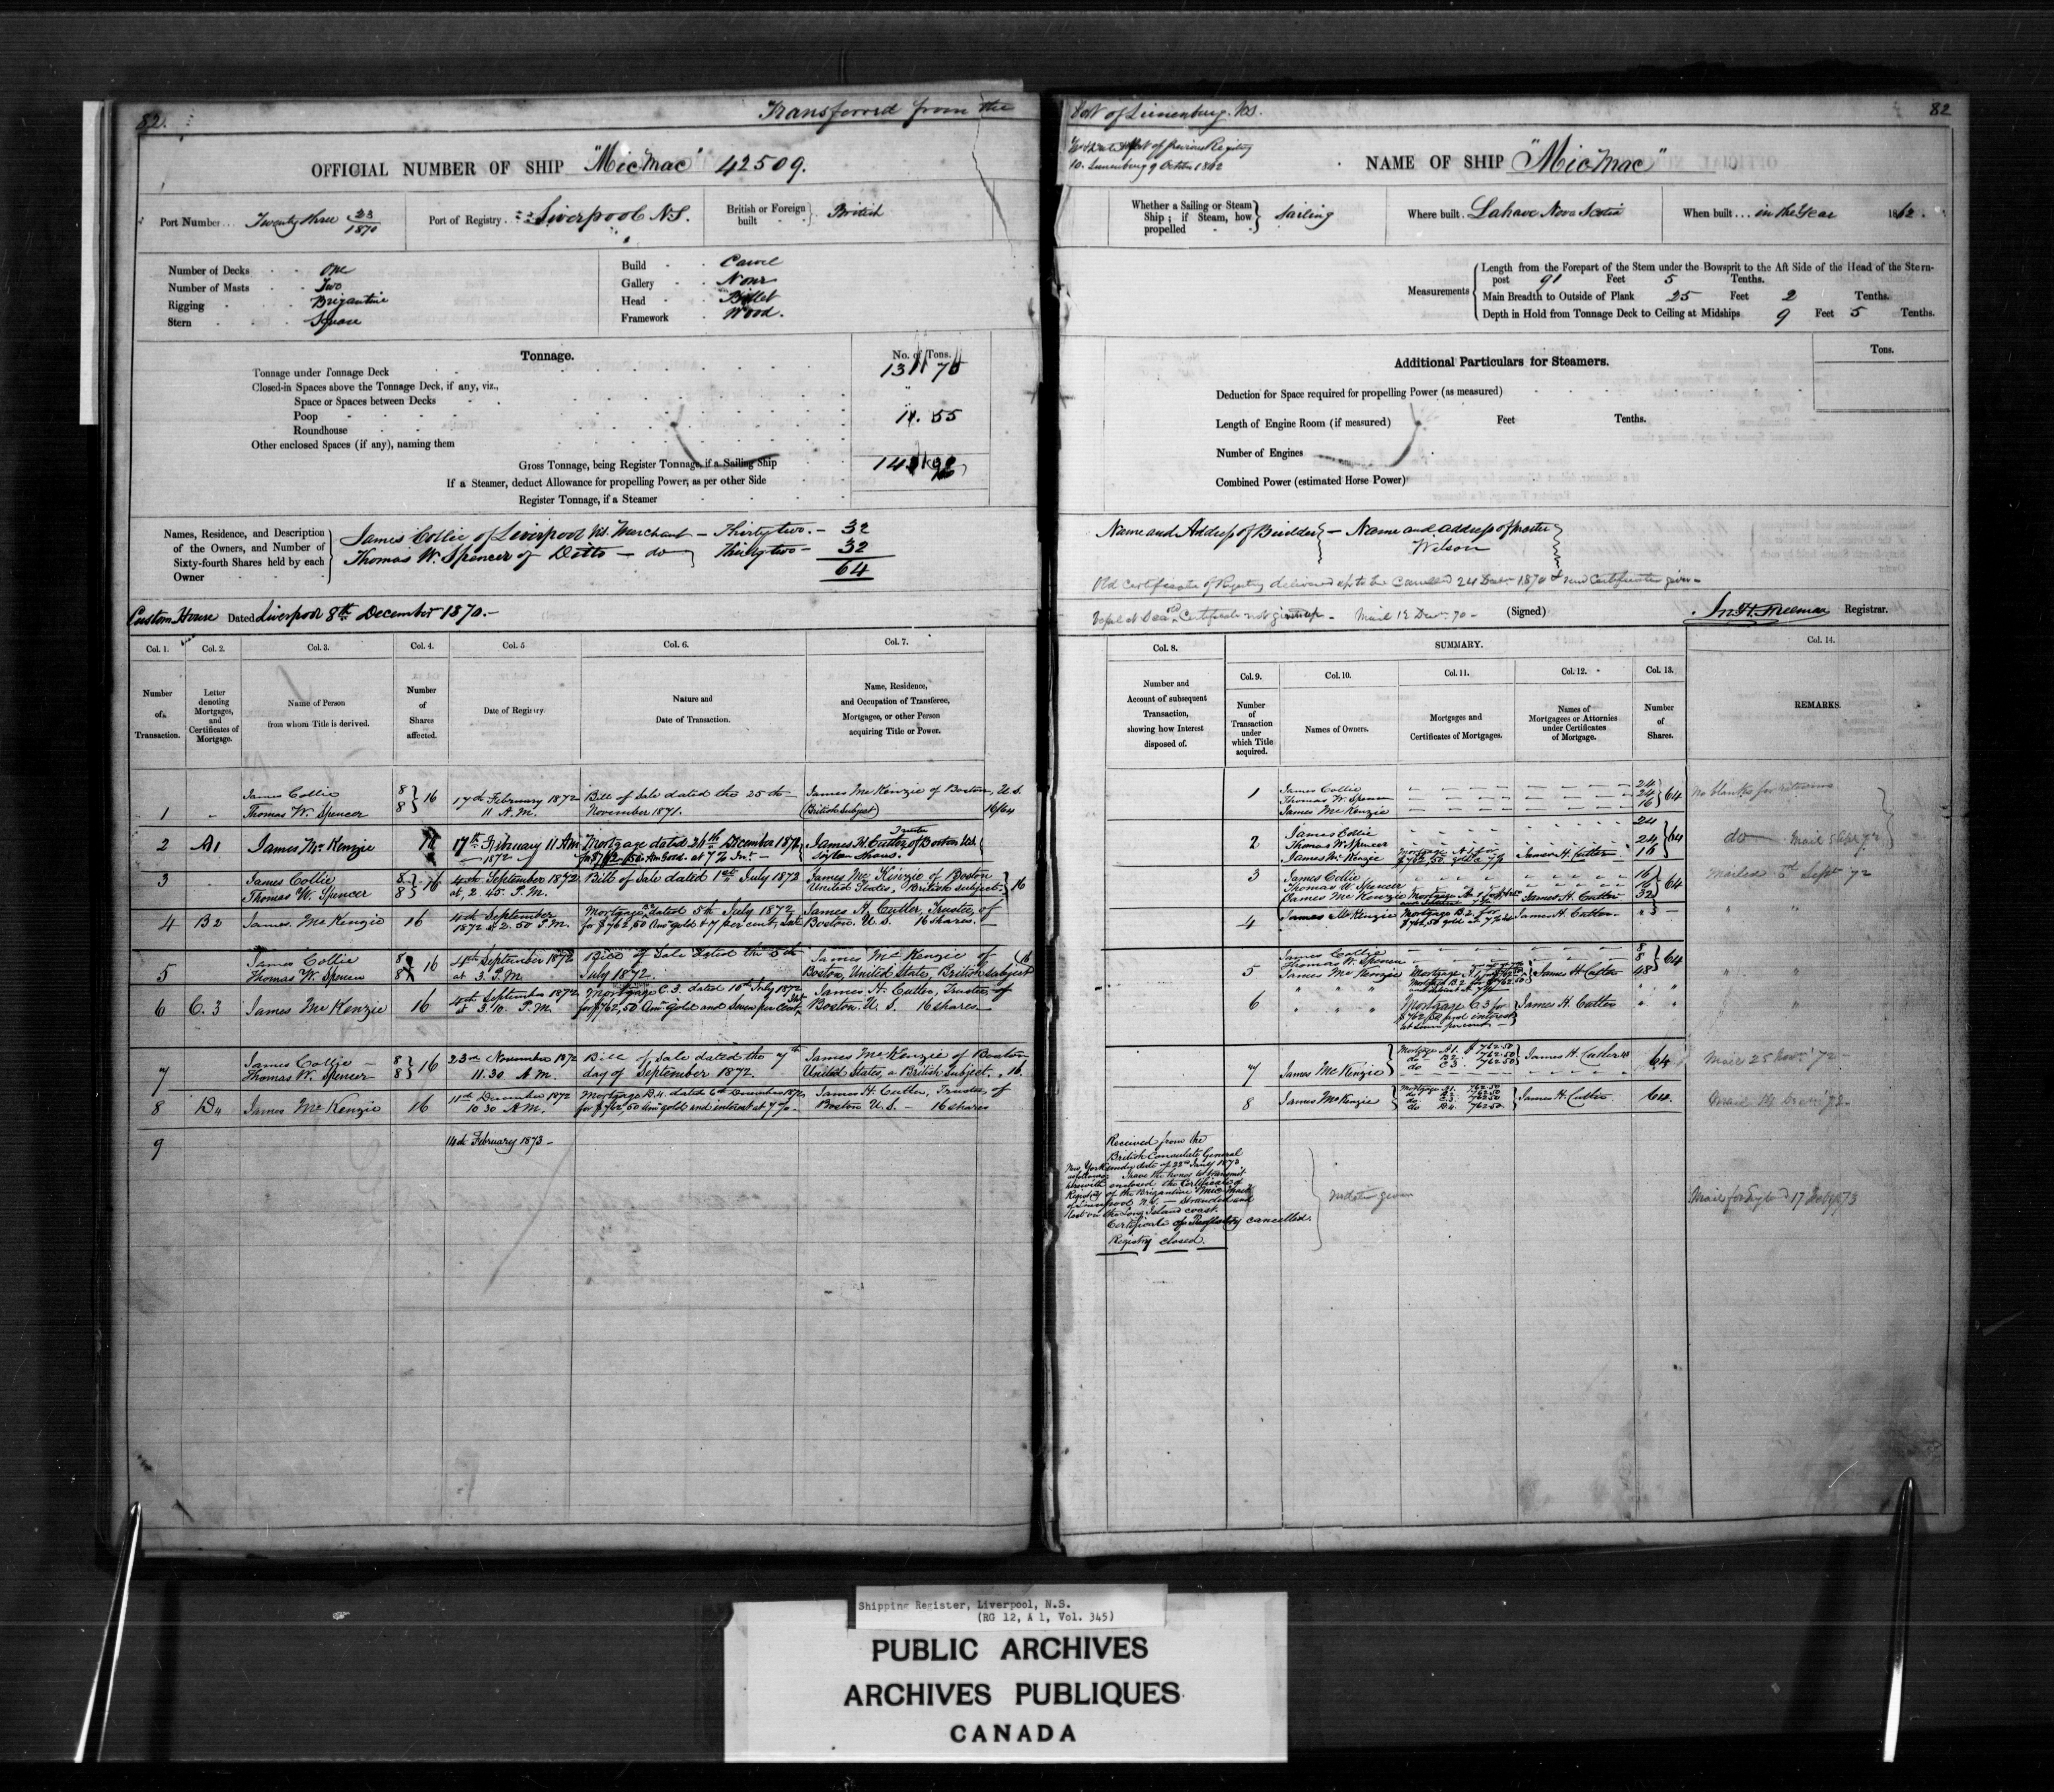 82.
Transferred from the
OFFICIAL NUMBER OF SHIP "MicMac" 42509.
Port Number... Twenty three 23/1870
Port of Registry Liverpool N.S.
British or Foreign built } British
Number of Decks One
Number of Masts Two
Rigging Brigantine
Stern Square
Build Carvel
Gallery None
Head Billet
Framework Wood.
Tonnage.
No. of Tons.
Tonnage under Tonnage Deck
Closed-in Spaces above the Tonnage Deck, if any, viz.,
Space or Spaces between Decks
Poop
Roundhouse
Other enclosed Spaces (if any), naming them
Gross Tonnage, being Register Tonnage, if a Sailing Ship
If a Steamer, deduct Allowance for propelling Power, as per other Side
Register Tonnage, if a Steamer
Names, Residence, and Description of the Owners, and Number of Sixty-fourth Shares held by each Owner
James Collie of Liverpool NS. Merchant — Thirty two. — 32
Thomas W. Spencer of Ditto — do Thirty two — 32
64
Custom House Dated Liverpool 8th December 1870. —
Col. 1. Col. 2. Col. 3. Col. 4. Col. 5 Col. 6. Col. 7.
Number of Transaction.
Letter denoting Mortgages, and Certificates of Mortgage.
Name of Person from whom Title is derived.
Number of Shares affected.
Date of Registry.
Nature and Date of Transaction.
Name, Residence, and Occupation of Transferee, Mortgagee, or other Person acquiring Title or Power.
James Collie 8 } 16 17th February 1872 Bill of Sale dated the 25th James McKenzie of Boston, U.S.
1 " Thomas W. Spencer 8 11 A.M. November 1871. (British Subject) 16/64
2 A1 James McKenzie 17th February 11 AM Mortgage dated 26th December 1871 James H. Cutler Trustee of Boston US
1872 at 7% Int.
3 James Collie 8 } 16 4th September 1872 Bill of Sale dated 1st July 1872 James McKenzie of Boston
Thomas W. Spencer 8 at 2.45 P.M. United States, British subject — } 16
4 B2 James McKenzie 16 4th September Mortgage dated 5th July 1872 James H. Cutler, Trustee, of
1872 at 2.50 P.M. for $762,50 Am gold & 7 per cent Int Boston U.S. 16 shares.
James Collie 8 } 16 4th September 1872 Bill of Sale dated the 5th James McKenzie of
5 Thomas W. Spencer 8 at 3. P.M. July 1872 Boston, United States, British subject } 16
6 C.3 James McKenzie 16 4th September 1872 Mortgage C.3. dated 10th July 1872 James H. Cutler, Trustee, of
at 3.10. P.M. for $762,50 Am gold and Seven per Cent Int Boston U.S. 16 shares
James Collie 8 } 16 23rd November 1872 Bill of Sale dated the 7th James McKenzie of Boston
7 Thomas W. Spencer 8 11.30 A.M. day of September 1872. United States, a British Subject. 16
8 D4 James McKenzie 16 11th December 1872 Mortgage D.4. dated 6th December 1872, James H. Cutler, Trustee, of
10 30 A.M. for $762,50 Am gold and interest at 7%. Boston U.S. — 16 shares
9 14th February 1873 —
Port of Lunenburg. NS.
82
10. Lunenburg 9 October 1862
NAME OF SHIP "MicMac"
Whether a Sailing or Steam Ship; if Steam, how propelled } Sailing
Where built. Lahave Nova Scotia
When built... in the Year 1862.
Measurements
Length from the Forepart of the Stem under the Bowsprit to the Aft Side of the Head of the Stern-
post 91 Feet 5 Tenths.
Main Breadth to Outside of Plank 25 Feet 2 Tenths.
Depth in Hold from Tonnage Deck to Ceiling at Midships 9 Feet 5 Tenths.
Additional Particulars for Steamers.
Tons.
Deduction for Space required for propelling Power (as measured)
Length of Engine Room (if measured) Feet Tenths.
Number of Engines
Combined Power (estimated Horse Power)
Name and Address of Builder } — Name and address of Master
Wilson
Old Certificate of Registry delivered up to be Cancelled 24 Decr 1870 & new Certificate given —
Vessel at Sea Certificate not given up — Mail 12 Decr 70 — (Signed)
Jn. H. Freeman Registrar.
Col. 8. SUMMARY. Col. 14.
Col. 9. Col. 10. Col. 11. Col. 12. Col. 13.
Number and Account of subsequent Transaction, showing how Interest disposed of.
Number of Transaction under which Title acquired.
Names of Owners.
Mortgages and Certificates of Mortgages.
Names of Mortgagees or Attornies under Certificates of Mortgage.
Number of Shares.
REMARKS.
1 James Collie 24
Thomas W. Spencer 24 } 64
James McKenzie 16
No blanks for returns
2 James Collie 24
Thomas W. Spencer 24 } 64
James McKenzie James H. Cutler 16
do
3 James Collie 16
Thomas W. Spencer 16 } 64
James McKenzie James H. Cutler 32
Mailed 6th Sept 72
4 James McKenzie Mortgage B.2. for James H. Cutler
$762,50 gold
5 James Collie 8
Thomas W. Spencer 8 } 64
James McKenzie James H Cutler 48
6 Mortgage C3 for James H. Cutler
$762,50 and interest
at seven per cent
7 James McKenzie Mortgage A1. $762.50
do B2. 762.50
do C3. 762.50 James H. Cutler 64
Mail 25 Novr 72 —
8 James McKenzie Mortgage A1. 762.50
do D.4. 762.50 James H. Cutler 64
Received from the
British Consulate General
New York under date of 22nd Jany 1873
as follows: I have the honor to transmit
herewith enclosed the Certificate of
Registry of the Brigantine "Mic Mac"
of Liverpool N.S. — Stranded and
lost on the Long Island coast.
Certificate of Registry cancelled.
Registry closed.
no date given
Shipping Register, Liverpool, N.S.
(RG 12, A 1, Vol. 345)
PUBLIC ARCHIVES
ARCHIVES PUBLIQUES
CANADA